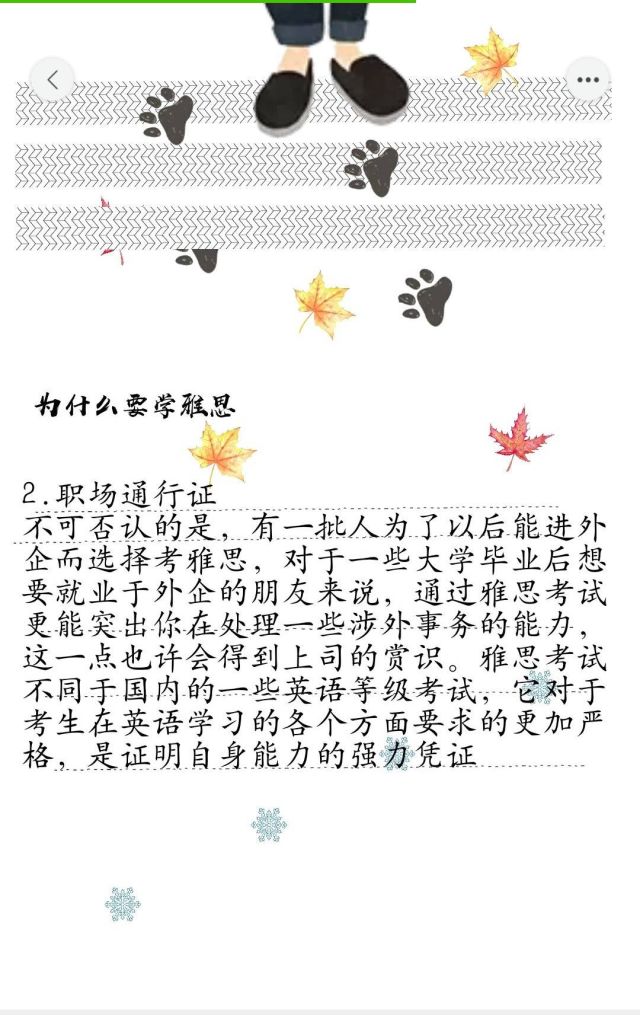 为什么要学雅思
2.职场通行证
不可否认的是，有一批人为了以后能进外
企而选择考雅思，对于一些大学毕业后想
要就业于外企的朋友来说，通过雅思考试
更能突出你在处理一些涉外事务的能力，
这一点也许会得到上司的赏识。雅思考试
不同于国内的一些英语等级考试，它对于
考生在英语学习的各个方面要求的更加严
格，是证明自身能力的强力凭证